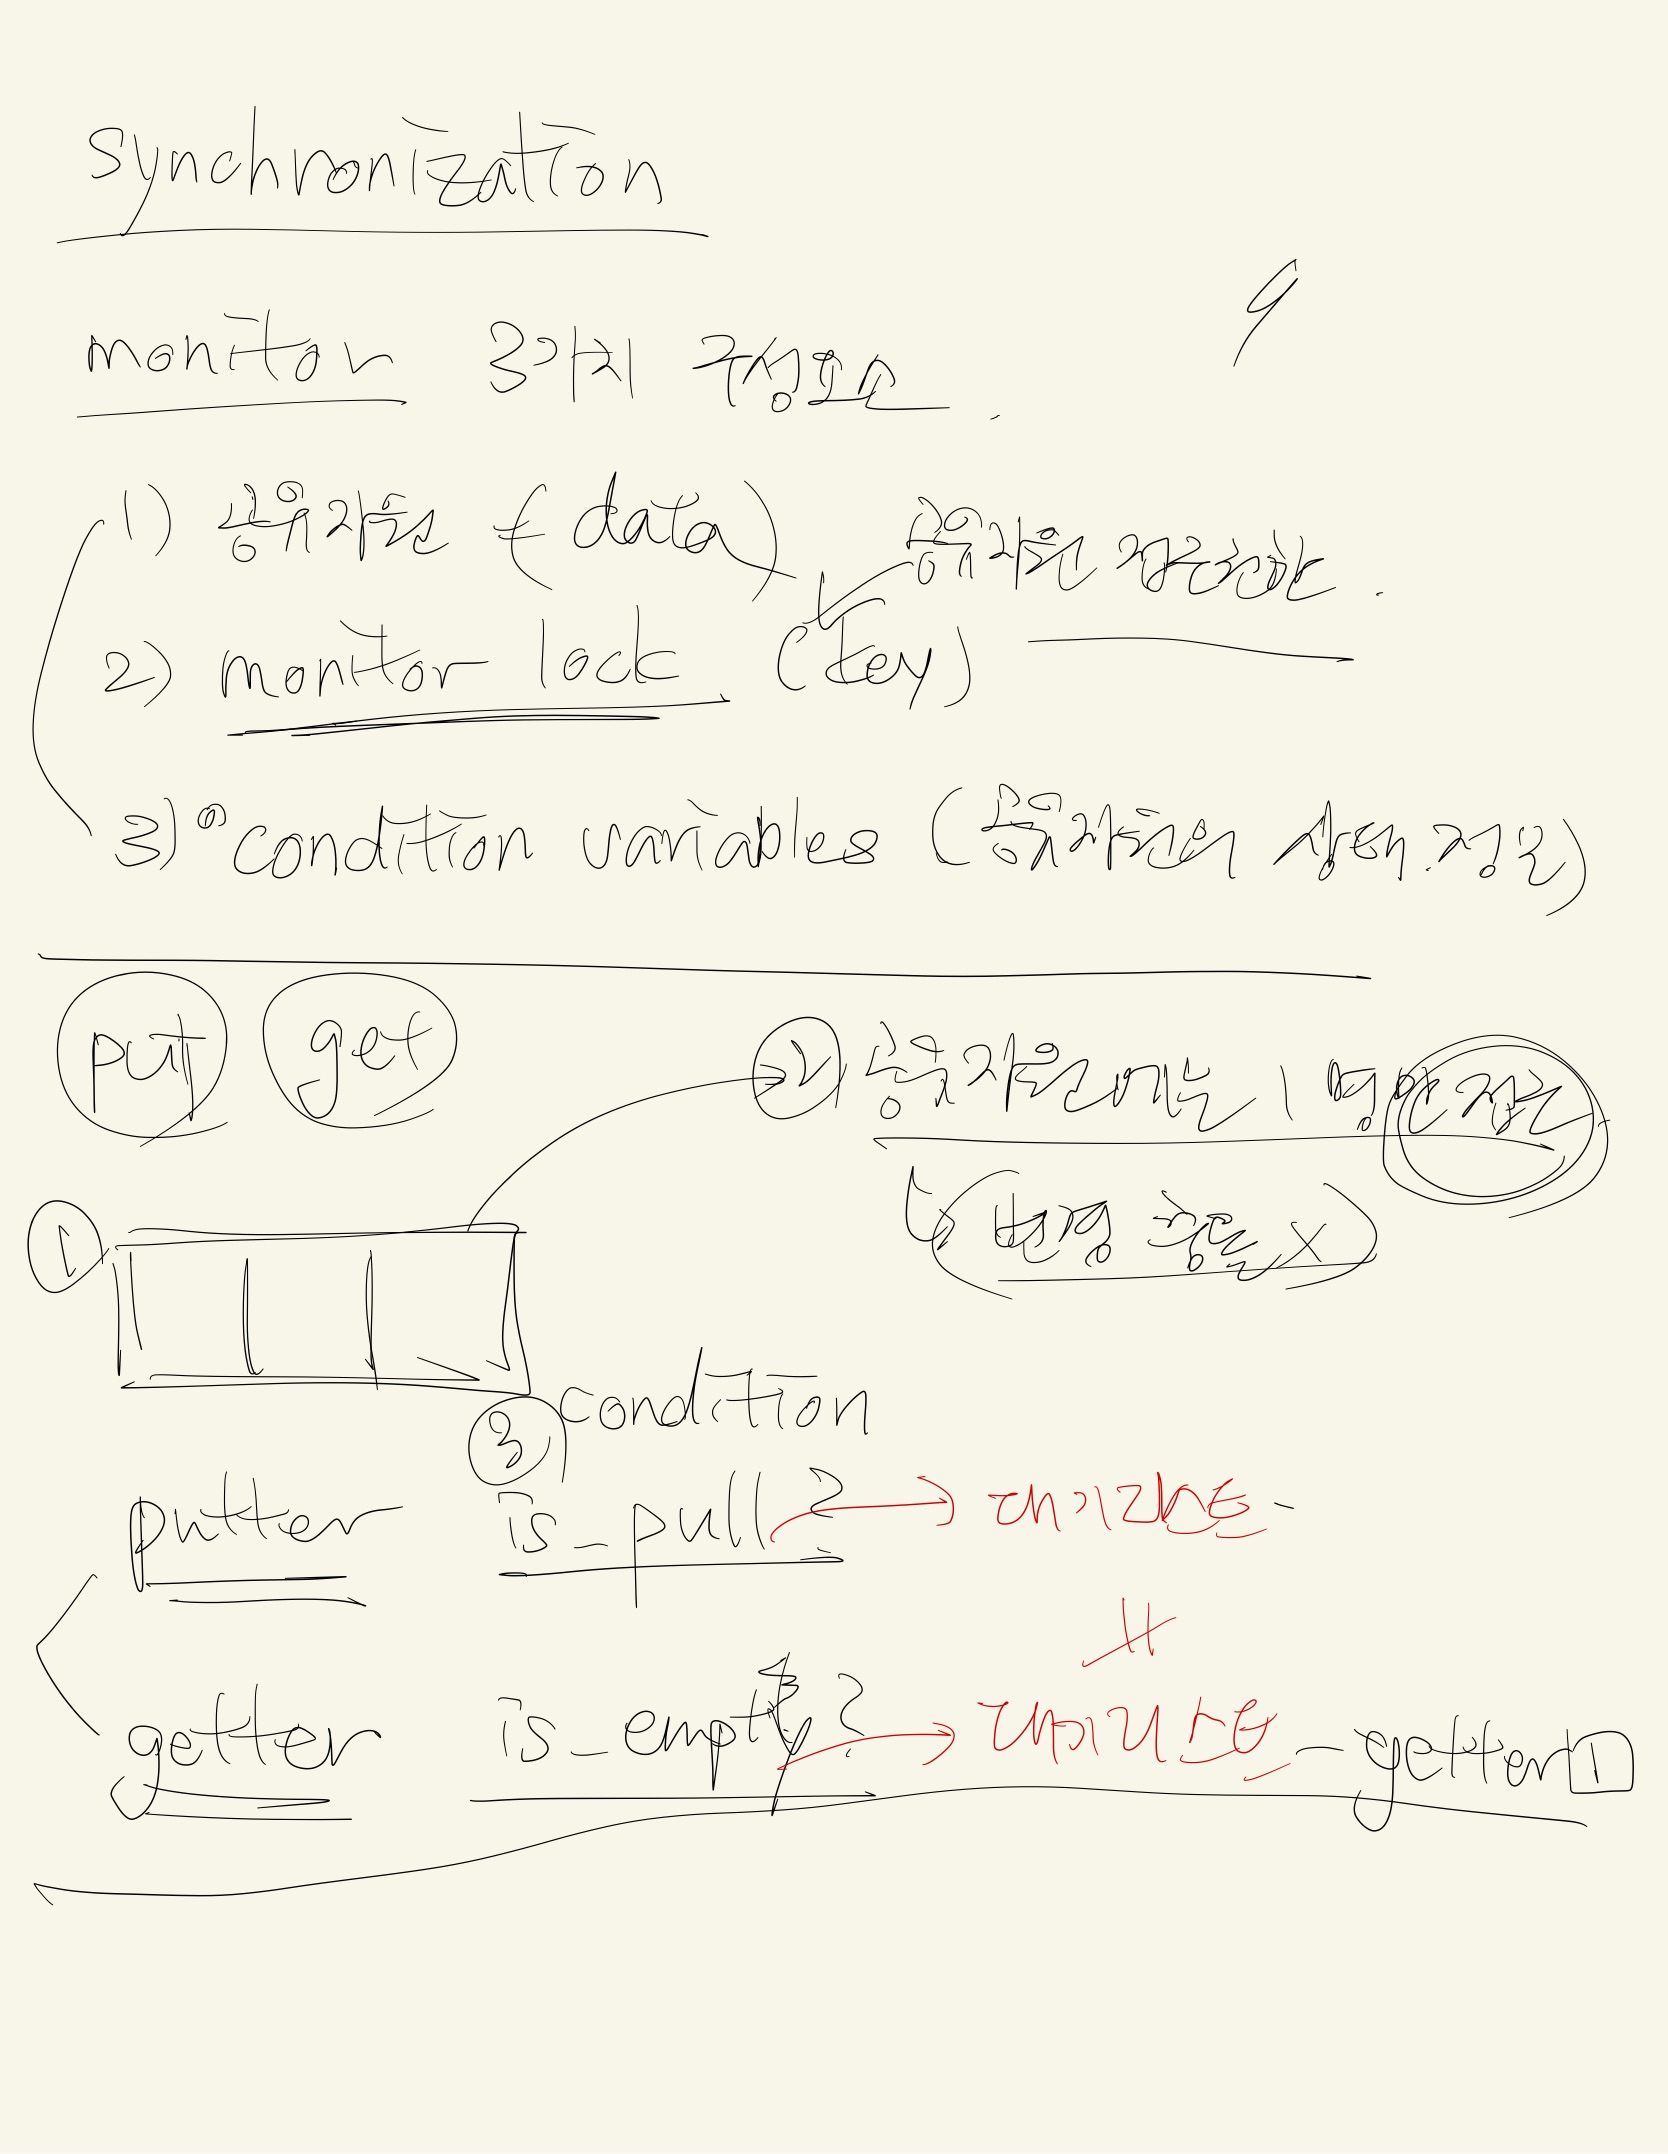 synchronization
monitor 3가지 구성요소.
1) 공유자원 (data)
공유자원 접근권한.
2) monitor lock. (key)
3) condition variables (공유자원의 상태.정보)
put get
2) 공유자원에는 1명만 접근
(변경 충돌 X)
1
3 condition
putter is_pull? → 대기리스트-
getter is_empty? → 대기리스트-getter 1